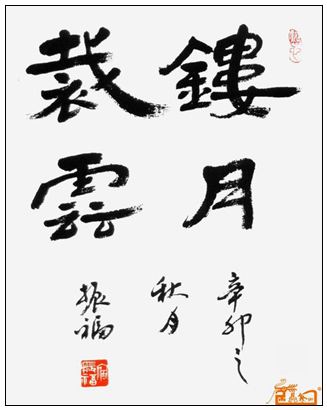 鏤月
裁雲
辛卯之
秋月
振福